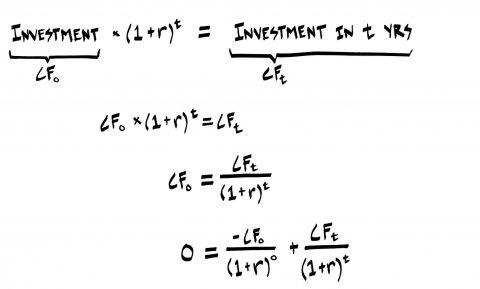 INVESTMENT × (1+r)^t = INVESTMENT IN t YRS
CF₀ CFₜ
CF₀ × (1+r)^t = CFₜ
CF₀ = CFₜ / (1+r)^t
0 = -CF₀ / (1+r)^0 + CFₜ / (1+r)^t